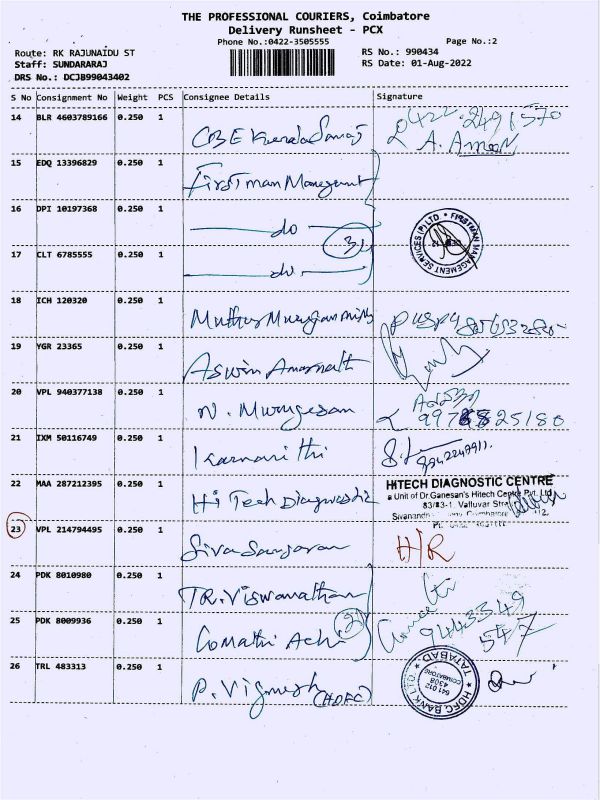 THE PROFESSIONAL COURIERS, Coimbatore
Delivery Runsheet - PCX
Phone No.:0422-3505555
Page No.:2
Route: RK RAJUNAIDU ST
RS No.: 990434
Staff: SUNDARARAJ
RS Date: 01-Aug-2022
DRS No.: DCJB99043402
S No Consignment No Weight PCS Consignee Details Signature
14 BLR 4603789166 0.250 1 CBE Kerala Samaj 0422-2491570
A. Amon
15 EDQ 13396829 0.250 1 First man Management
16 DPI 10197368 0.250 1 do
3
17 CLT 6785555 0.250 1 do
FIRSTMAN MANAGEMENT SERVICES (P) LTD
18 ICH 120320 0.250 1 Muthu Murugan Mills
19 YGR 23365 0.250 1 Aswin Amarnath
20 VPL 940377138 0.250 1 N. Murugesan
21 IXM 50116749 0.250 1
22 MAA 287212395 0.250 1 Hi Tech Diagnostic
HITECH DIAGNOSTIC CENTRE
a Unit of Dr.Ganesan's Hitech Centre Pvt. Ltd
83/83-1, Valluvar Street
23 VPL 214794495 0.250 1 Siva Sangaran H/R
24 PDK 8010980 0.250 1 TR. Viswanathan
25 PDK 8009936 0.250 1 Gomathi Achi 2 9443349
547
26 TRL 483313 0.250 1 P. Vignesh (HDFC)
HDFC BANK LTD. TATABAD
COIMBATORE
641 012